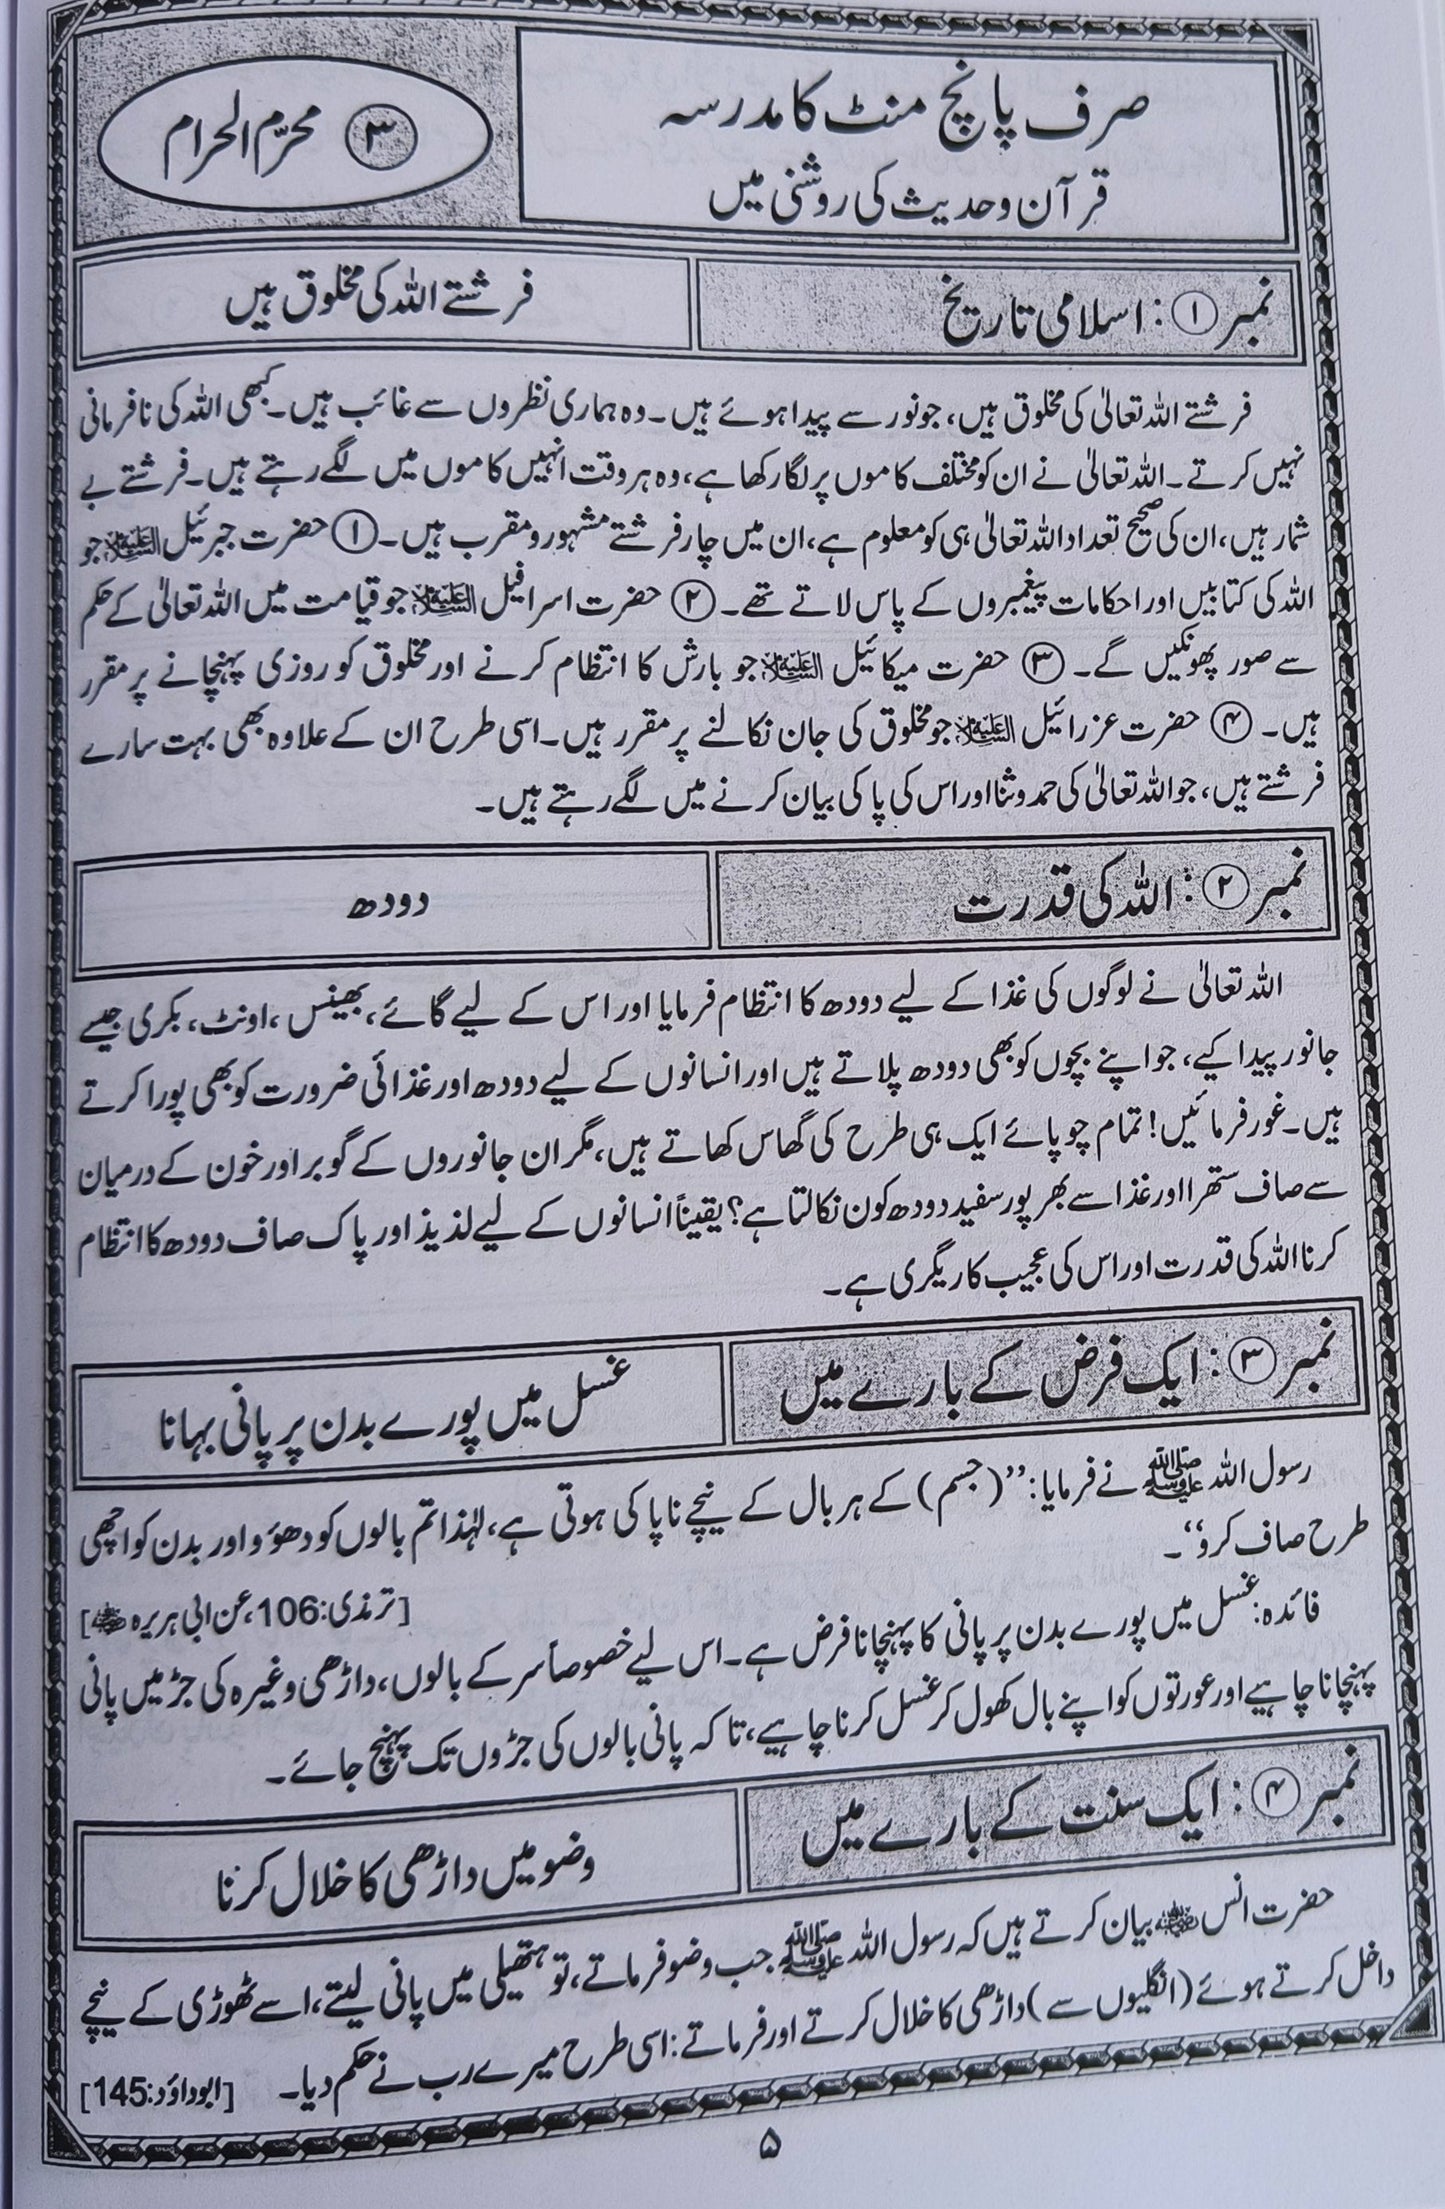 صرف پانچ منٹ کا مدرسہ
قرآن و حدیث کی روشنی میں
۳ محرّم الحرام
نمبر ۱ : اسلامی تاریخ
فرشتے اللہ کی مخلوق ہیں
فرشتے اللہ تعالیٰ کی مخلوق ہیں، جو نور سے پیدا ہوئے ہیں۔ وہ ہماری نظروں سے غائب ہیں۔ کبھی اللہ کی نافرمانی
نہیں کرتے۔ اللہ تعالیٰ نے ان کو مختلف کاموں پر لگا رکھا ہے، وہ ہر وقت انہیں کاموں میں لگے رہتے ہیں۔ فرشتے بے
شمار ہیں، ان کی صحیح تعداد اللہ تعالیٰ ہی کو معلوم ہے، ان میں چار فرشتے مشہور و مقرب ہیں۔ ۱ حضرت جبرئیل علیہ السلام جو
اللہ کی کتابیں اور احکامات پیغمبروں کے پاس لاتے تھے۔ ۲ حضرت اسرافیل علیہ السلام جو قیامت میں اللہ تعالیٰ کے حکم
سے صور پھونکیں گے۔ ۳ حضرت میکائیل علیہ السلام جو بارش کا انتظام کرنے اور مخلوق کو روزی پہنچانے پر مقرر
ہیں۔ ۴ حضرت عزرائیل علیہ السلام جو مخلوق کی جان نکالنے پر مقرر ہیں۔ اسی طرح ان کے علاوہ بھی بہت سارے
فرشتے ہیں، جو اللہ تعالیٰ کی حمد و ثنا اور اس کی پاکی بیان کرنے میں لگے رہتے ہیں۔
نمبر ۲ : اللہ کی قدرت
دودھ
اللہ تعالیٰ نے لوگوں کی غذا کے لیے دودھ کا انتظام فرمایا اور اس کے لیے گائے، بھینس، اونٹ، بکری جیسے
جانور پیدا کیے، جو اپنے بچوں کو بھی دودھ پلاتے ہیں اور انسانوں کے لیے دودھ اور غذائی ضرورت کو بھی پورا کرتے
ہیں۔ غور فرمائیں! تمام چوپائے ایک ہی طرح کی گھاس کھاتے ہیں، مگر ان جانوروں کے گوبر اور خون کے درمیان
سے صاف ستھرا اور غذا سے بھر پور سفید دودھ کون نکالتا ہے؟ یقیناً انسانوں کے لیے لذیذ اور پاک صاف دودھ کا انتظام
کرنا اللہ کی قدرت اور اس کی عجیب کاریگری ہے۔
نمبر ۳ : ایک فرض کے بارے میں
غسل میں پورے بدن پر پانی بہانا
رسول اللہ ﷺ نے فرمایا: ”(جسم) کے ہر بال کے نیچے ناپاکی ہوتی ہے، لہٰذا تم بالوں کو دھؤو اور بدن کو اچھی
طرح صاف کرو“۔
[ترمذی: 106، عن ابی ہریرہ رضی اللہ عنہ]
فائدہ: غسل میں پورے بدن پر پانی کا پہنچانا فرض ہے۔ اس لیے خصوصاً سر کے بالوں، داڑھی وغیرہ کی جڑ میں پانی
پہنچانا چاہیے اور عورتوں کو اپنے بال کھول کر غسل کرنا چاہیے، تا کہ پانی بالوں کی جڑوں تک پہنچ جائے۔
نمبر ۴ : ایک سنت کے بارے میں
وضو میں داڑھی کا خلال کرنا
حضرت انس رضی اللہ عنہ بیان کرتے ہیں کہ رسول اللہ ﷺ جب وضو فرماتے، تو ہتھیلی میں پانی لیتے، اسے ٹھوڑی کے نیچے
داخل کرتے ہوئے (انگلیوں سے) داڑھی کا خلال کرتے اور فرماتے: اسی طرح میرے رب نے حکم دیا۔ [ابوداؤد: 145]
۵